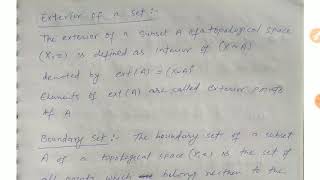 Exterior of a set :-
The exterior of a subset A of a topological space
(X,τ) is defined as interior of (X~A)
denoted by ext(A) = (X~A)°
Elements of ext(A) are called exterior points
of A
Boundary Set :- The boundary set of a subset
A of a topological space (X,τ) is the set of
all points which belong neither to the